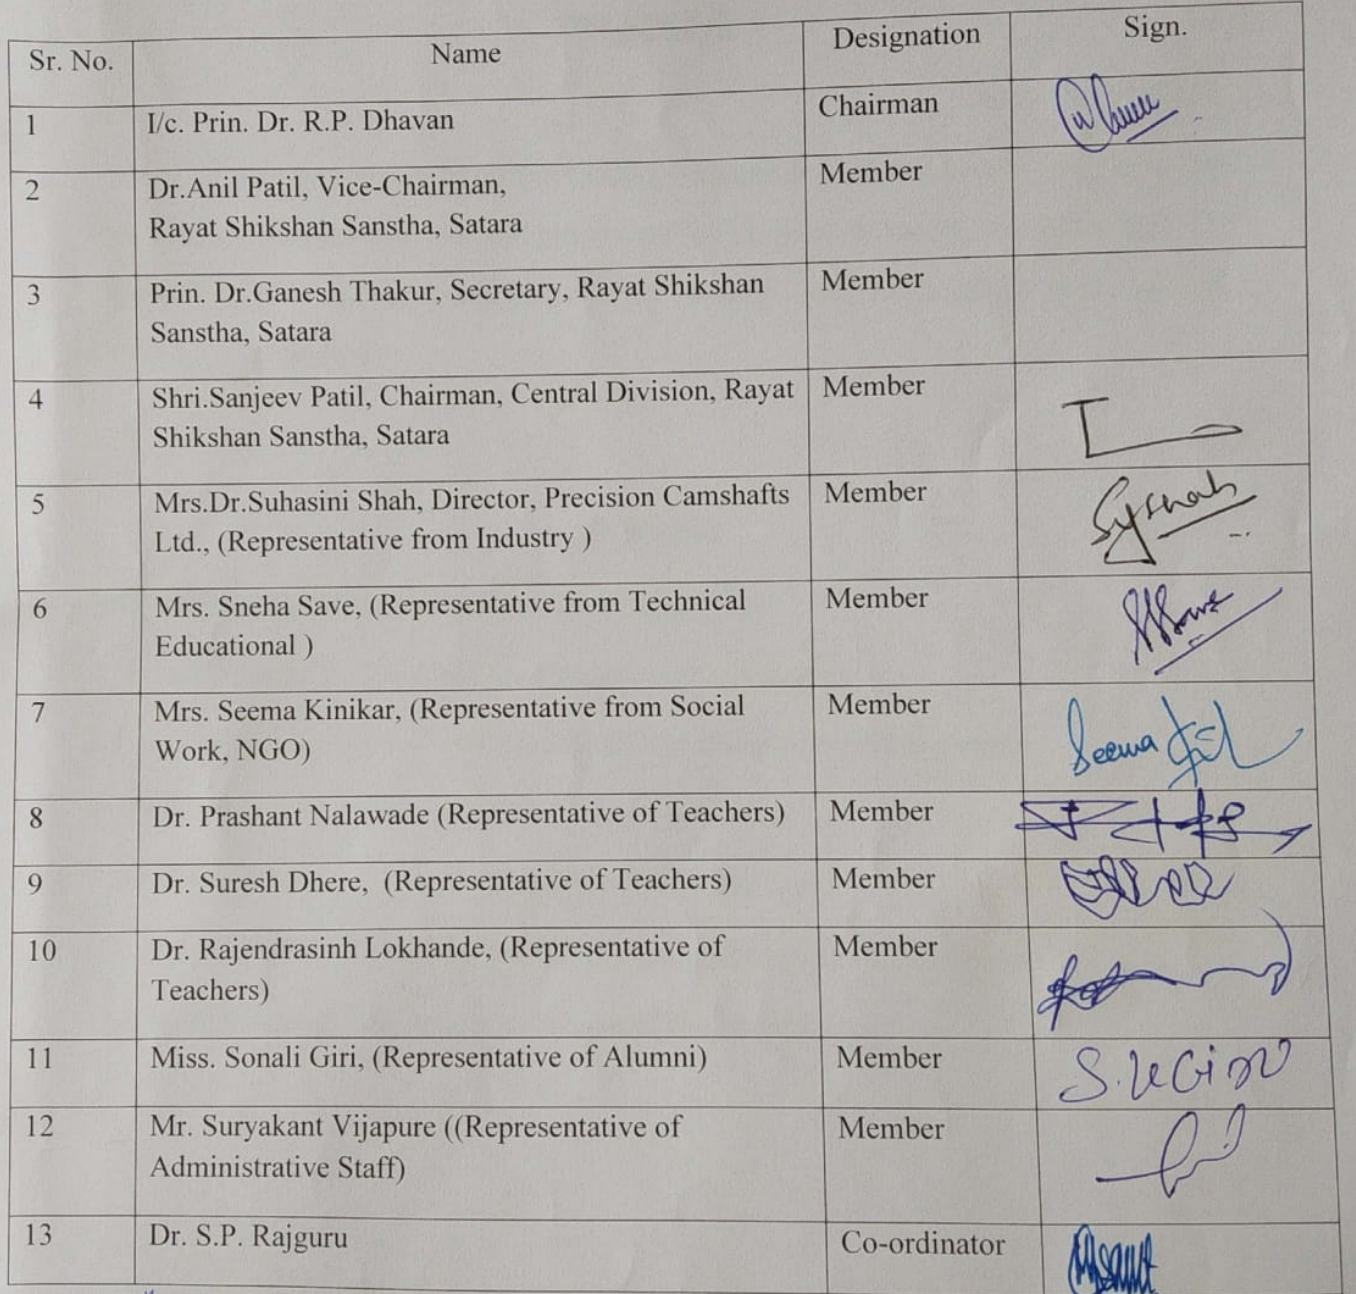 Sr. No. Name Designation Sign.
1 I/c. Prin. Dr. R.P. Dhavan Chairman
2 Dr.Anil Patil, Vice-Chairman, Member
Rayat Shikshan Sanstha, Satara
3 Prin. Dr.Ganesh Thakur, Secretary, Rayat Shikshan Member
Sanstha, Satara
4 Shri.Sanjeev Patil, Chairman, Central Division, Rayat Member
Shikshan Sanstha, Satara
5 Mrs.Dr.Suhasini Shah, Director, Precision Camshafts Member
Ltd., (Representative from Industry )
6 Mrs. Sneha Save, (Representative from Technical Member
Educational )
7 Mrs. Seema Kinikar, (Representative from Social Member
Work, NGO) Seema
8 Dr. Prashant Nalawade (Representative of Teachers) Member
9 Dr. Suresh Dhere, (Representative of Teachers) Member
10 Dr. Rajendrasinh Lokhande, (Representative of Member
Teachers)
11 Miss. Sonali Giri, (Representative of Alumni) Member
12 Mr. Suryakant Vijapure ((Representative of Member
Administrative Staff)
13 Dr. S.P. Rajguru Co-ordinator